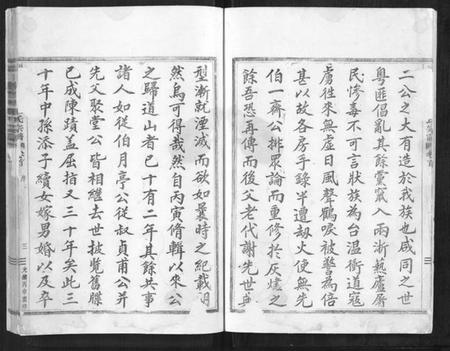 二公之大有造於我族也咸同之世
粵匪倡亂其餘黨竄入兩浙甌廬廥
民慘毒不可言狀族為台溫衝道寇
虜往來無虛日風聲鶴唳被警為倍
甚以故各房手錄半遭劫火使無先
伯一齋公排眾論而重修於灰燼之
餘吾恐再傳而後父老代謝先世典
型漸就湮滅而欲如曩時之紀載明
然烏可得哉然自丙寅脩輯以來公
之歸道山者已十有二年其餘共事
諸人如從伯月亭公從叔貞甫公并
先父聚堂公皆相繼去世披覽舊牒
已成陳蹟蓋屈指又三十年矣此三
十年中孫添子續女嫁男婚以及卒
氏宗譜 卷首 序
三
光緒丙申重修